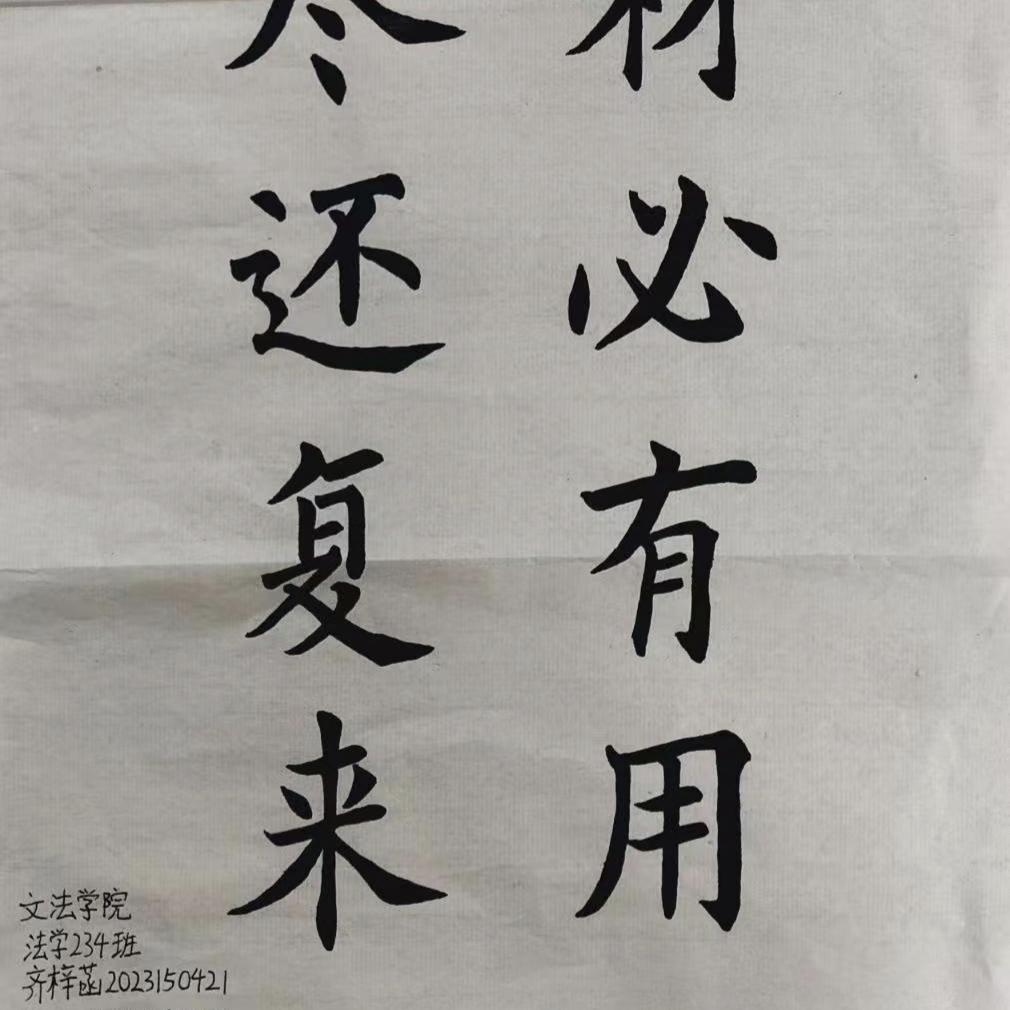 材必有用
尽还复来
文法学院
法学234班
齐梓菡2023150421